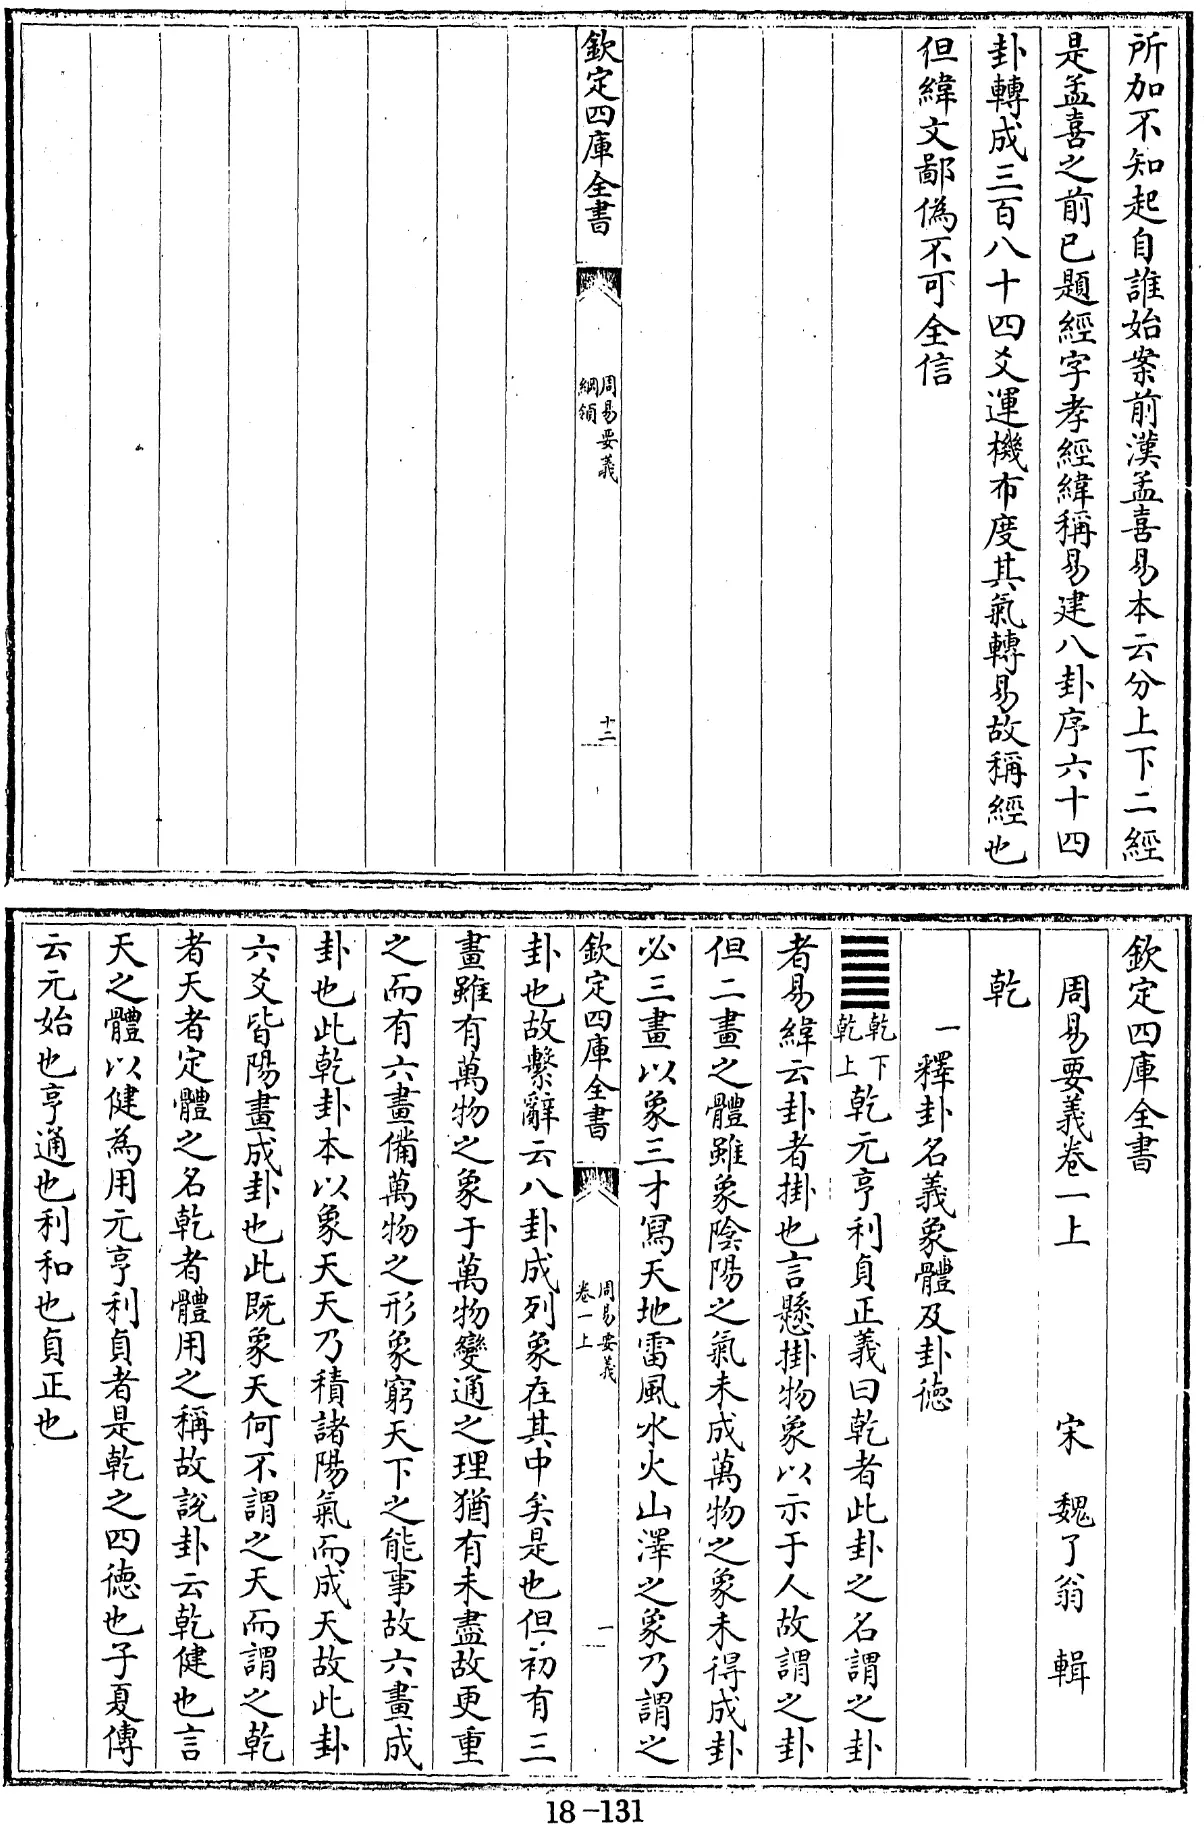 所加不知起自誰始案前漢孟喜易本云分上下二經
是孟喜之前已題經字孝經緯稱易建八卦序六十四
卦轉成三百八十四爻運機布度其氣轉易故稱經也
但緯文鄙偽不可全信
欽定四庫全書
周易要義
綱領
十二
欽定四庫全書
周易要義卷一上
宋 魏了翁 輯
乾
一釋卦名義象體及卦德
乾下
乾上
乾元亨利貞正義曰乾者此卦之名謂之卦
者易緯云卦者掛也言懸掛物象以示于人故謂之卦
但二畫之體雖象陰陽之氣未成萬物之象未得成卦
必三畫以象三才寫天地雷風水火山澤之象乃謂之
欽定四庫全書
周易要義
卷一上
一
卦也故繫辭云八卦成列象在其中矣是也但初有三
畫雖有萬物之象于萬物變通之理猶有未盡故更重
之而有六畫備萬物之形象窮天下之能事故六畫成
卦也此乾卦本以象天天乃積諸陽氣而成天故此卦
六爻皆陽畫成卦也此既象天何不謂之天而謂之乾
者天者定體之名乾者體用之稱故說卦云乾健也言
天之體以健為用元亨利貞者是乾之四德也子夏傳
云元始也亨通也利和也貞正也
18-131